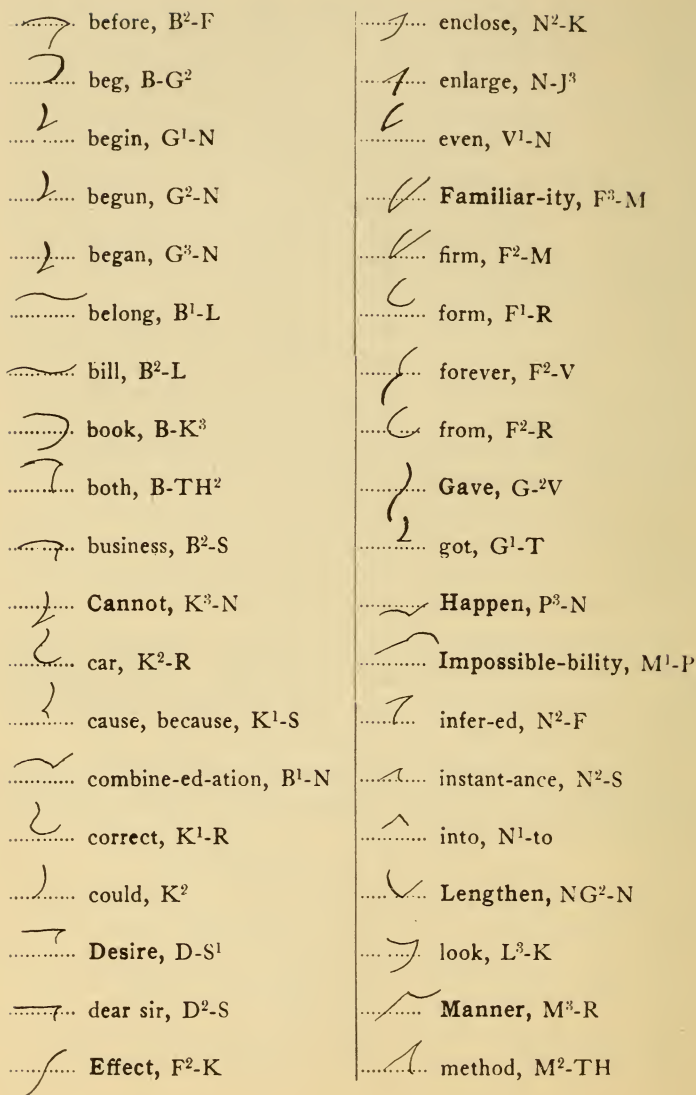 before, B²-F
beg, B-G²
begin, G¹-N
begun, G²-N
began, G³-N
belong, B¹-L
bill, B²-L
book, B-K³
both, B-TH²
business, B²-S
Cannot, K³-N
car, K²-R
cause, because, K¹-S
combine-ed-ation, B¹-N
correct, K¹-R
could, K²
Desire, D-S¹
dear sir, D²-S
Effect, F²-K
enclose, N²-K
enlarge, N-J³
even, V¹-N
Familiar-ity, F³-M
firm, F²-M
form, F¹-R
forever, F²-V
from, F²-R
Gave, G-²V
got, G¹-T
Happen, P³-N
Impossible-bility, M¹-P
infer-ed, N²-F
instant-ance, N²-S
into, N¹-to
Lengthen, NG²-N
look, L³-K
Manner, M³-R
method, M²-TH